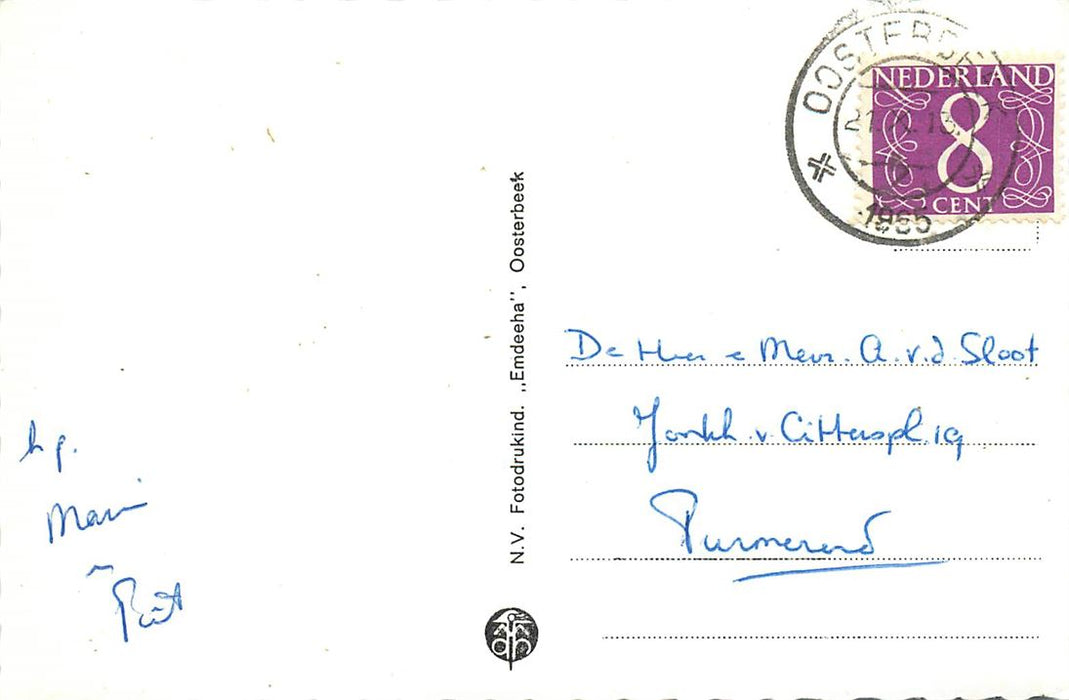 OOSTERBEEK
1965
NEDERLAND
8
CENT
N.V. Fotodrukind. „Emdeeha”, Oosterbeek
De Heer e Mevr. A. v. d. Sloot
Jonkh. v. Citterspl. 19
Purmerend
h. g.
Piet